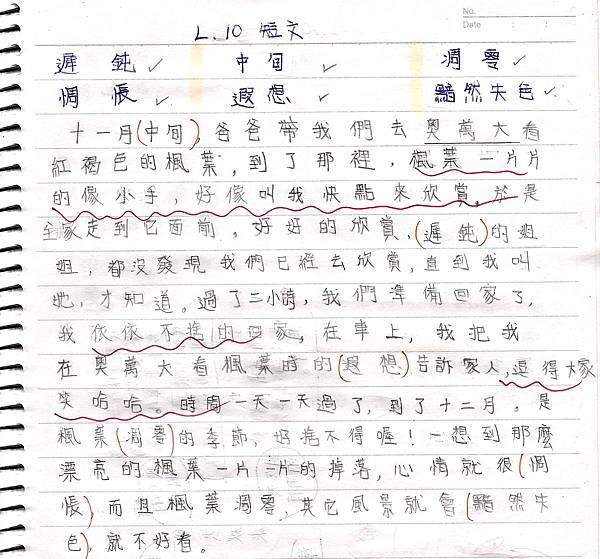 No.
Date : :
L.10 短文
遲鈍✓ 中旬✓ 凋零✓
惆悵✓ 遐想✓ 黯然失色✓
十一月(中旬)爸爸帶我們去奧萬大看
紅褐色的楓葉,到了那裡,楓葉一片片
的像小手,好像叫我快點來欣賞。於是
全家走到它面前,好好的欣賞,(遲鈍)的姐
姐,都沒發現我們已經去欣賞,直到我叫
她,才知道。過了二小時,我們準備回家了,
我依依不捨的回家。在車上,我把我
在奧萬大看楓葉時的(遐想)告訴家人,逗得大家
笑哈哈。時間一天一天過了,到了十二月。是
楓葉(凋零)的季節,好捨不得喔!一想到那麼
漂亮的楓葉一片一片的掉落,心情就很(惆
悵),而且楓葉凋零,其它風景就會(黯然失
色),就不好看。